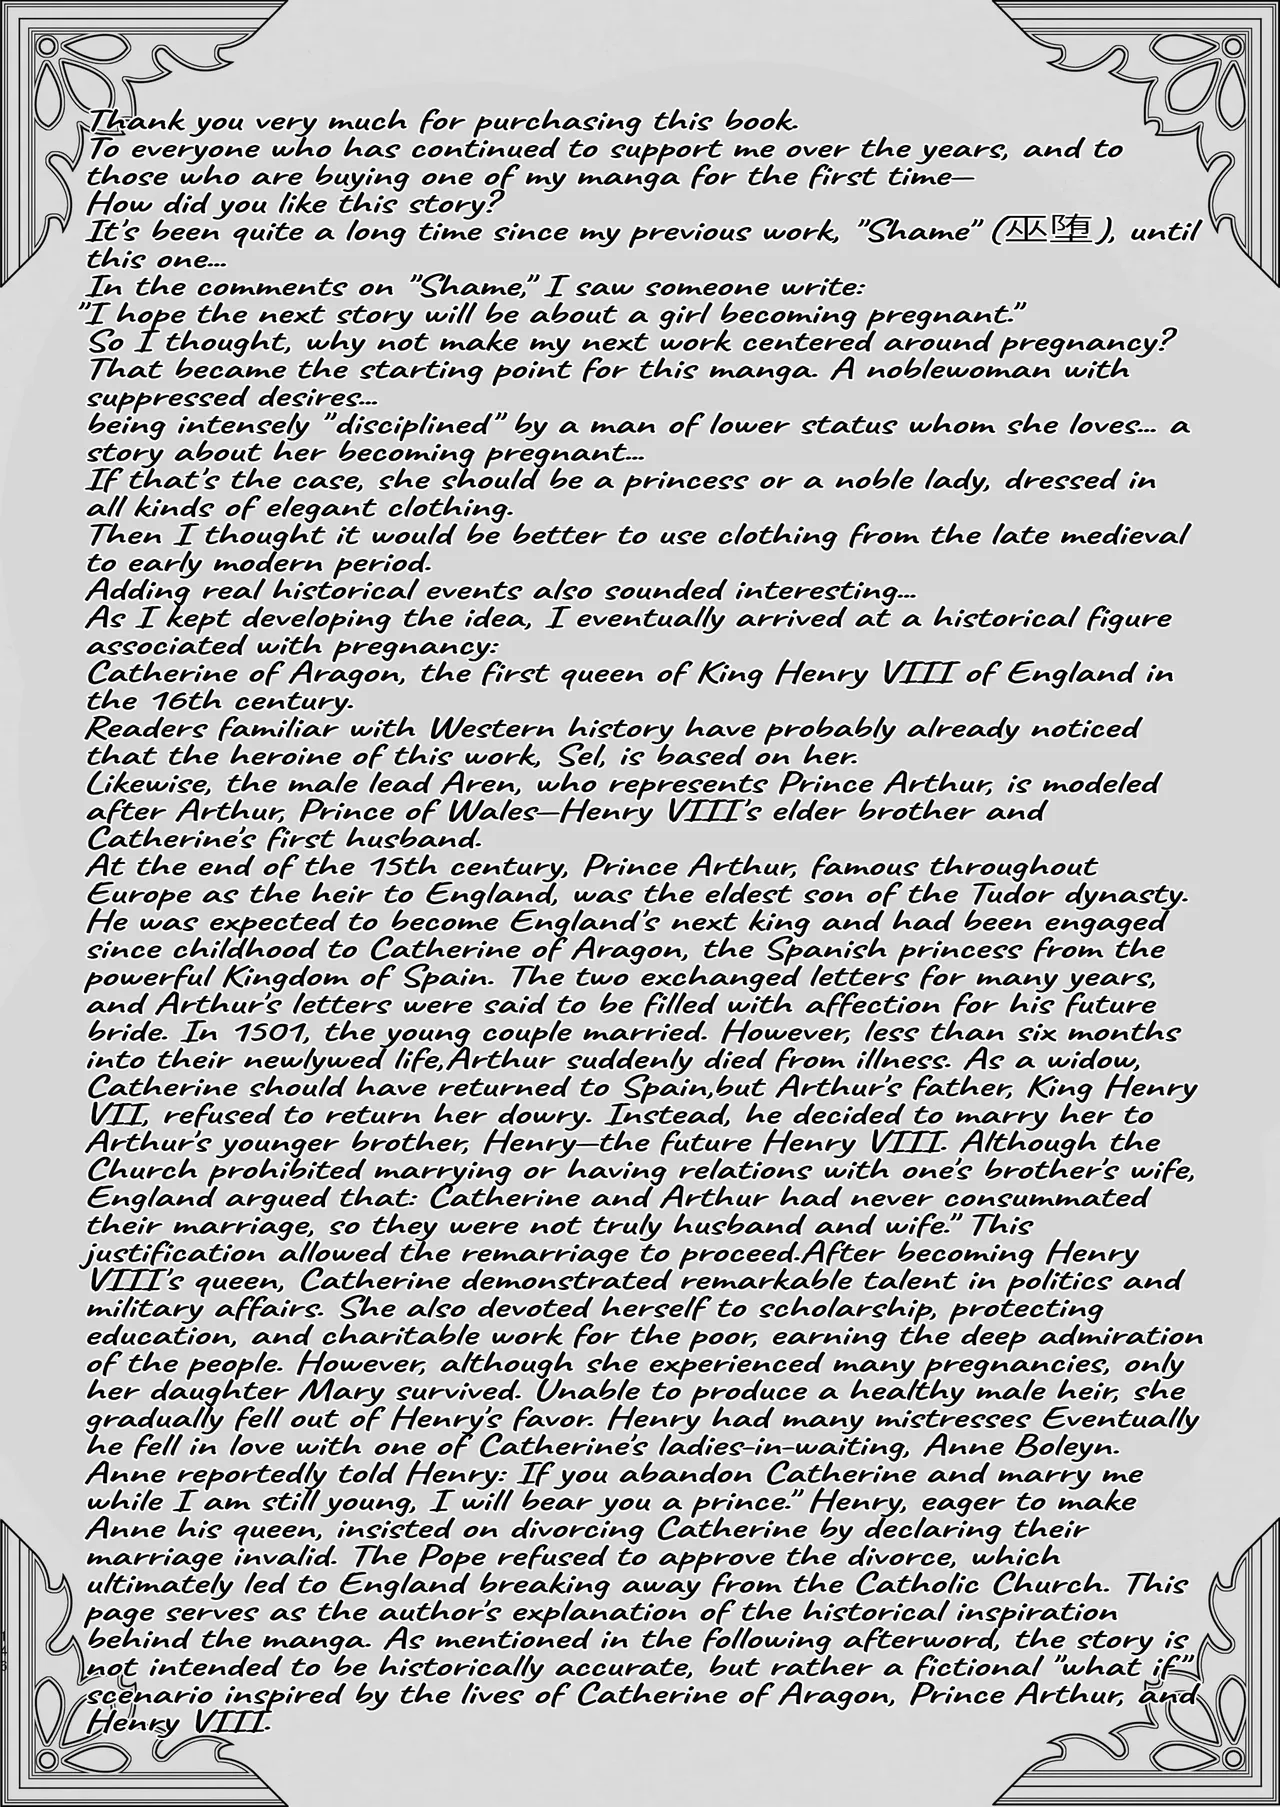 Thank you very much for purchasing this book.
To everyone who has continued to support me over the years, and to
those who are buying one of my manga for the first time—
How did you like this story?
It's been quite a long time since my previous work, "Shame" (巫堕), until
this one...
In the comments on "Shame," I saw someone write:
"I hope the next story will be about a girl becoming pregnant."
So I thought, why not make my next work centered around pregnancy?
That became the starting point for this manga. A noblewoman with
suppressed desires...
being intensely "disciplined" by a man of lower status whom she loves... a
story about her becoming pregnant...
If that's the case, she should be a princess or a noble lady, dressed in
all kinds of elegant clothing.
Then I thought it would be better to use clothing from the late medieval
to early modern period.
Adding real historical events also sounded interesting...
As I kept developing the idea, I eventually arrived at a historical figure
associated with pregnancy:
Catherine of Aragon, the first queen of King Henry VIII of England in
the 16th century.
Readers familiar with Western history have probably already noticed
that the heroine of this work, Sel, is based on her.
Likewise, the male lead Aren, who represents Prince Arthur, is modeled
after Arthur, Prince of Wales—Henry VIII's elder brother and
Catherine's first husband.
At the end of the 15th century, Prince Arthur, famous throughout
Europe as the heir to England, was the eldest son of the Tudor dynasty.
He was expected to become England's next king and had been engaged
since childhood to Catherine of Aragon, the Spanish princess from the
powerful Kingdom of Spain. The two exchanged letters for many years,
and Arthur's letters were said to be filled with affection for his future
bride. In 1501, the young couple married. However, less than six months
into their newlywed life,Arthur suddenly died from illness. As a widow,
Catherine should have returned to Spain,but Arthur's father, King Henry
VII, refused to return her dowry. Instead, he decided to marry her to
Arthur's younger brother, Henry—the future Henry VIII. Although the
Church prohibited marrying or having relations with one's brother's wife,
England argued that: Catherine and Arthur had never consummated
their marriage, so they were not truly husband and wife." This
justification allowed the remarriage to proceed.After becoming Henry
VIII's queen, Catherine demonstrated remarkable talent in politics and
military affairs. She also devoted herself to scholarship, protecting
education, and charitable work for the poor, earning the deep admiration
of the people. However, although she experienced many pregnancies, only
her daughter Mary survived. Unable to produce a healthy male heir, she
gradually fell out of Henry's favor. Henry had many mistresses Eventually
he fell in love with one of Catherine's ladies-in-waiting, Anne Boleyn.
Anne reportedly told Henry: If you abandon Catherine and marry me
while I am still young, I will bear you a prince." Henry, eager to make
Anne his queen, insisted on divorcing Catherine by declaring their
marriage invalid. The Pope refused to approve the divorce, which
ultimately led to England breaking away from the Catholic Church. This
page serves as the author's explanation of the historical inspiration
behind the manga. As mentioned in the following afterword, the story is
not intended to be historically accurate, but rather a fictional "what if"
scenario inspired by the lives of Catherine of Aragon, Prince Arthur, and
Henry VIII.